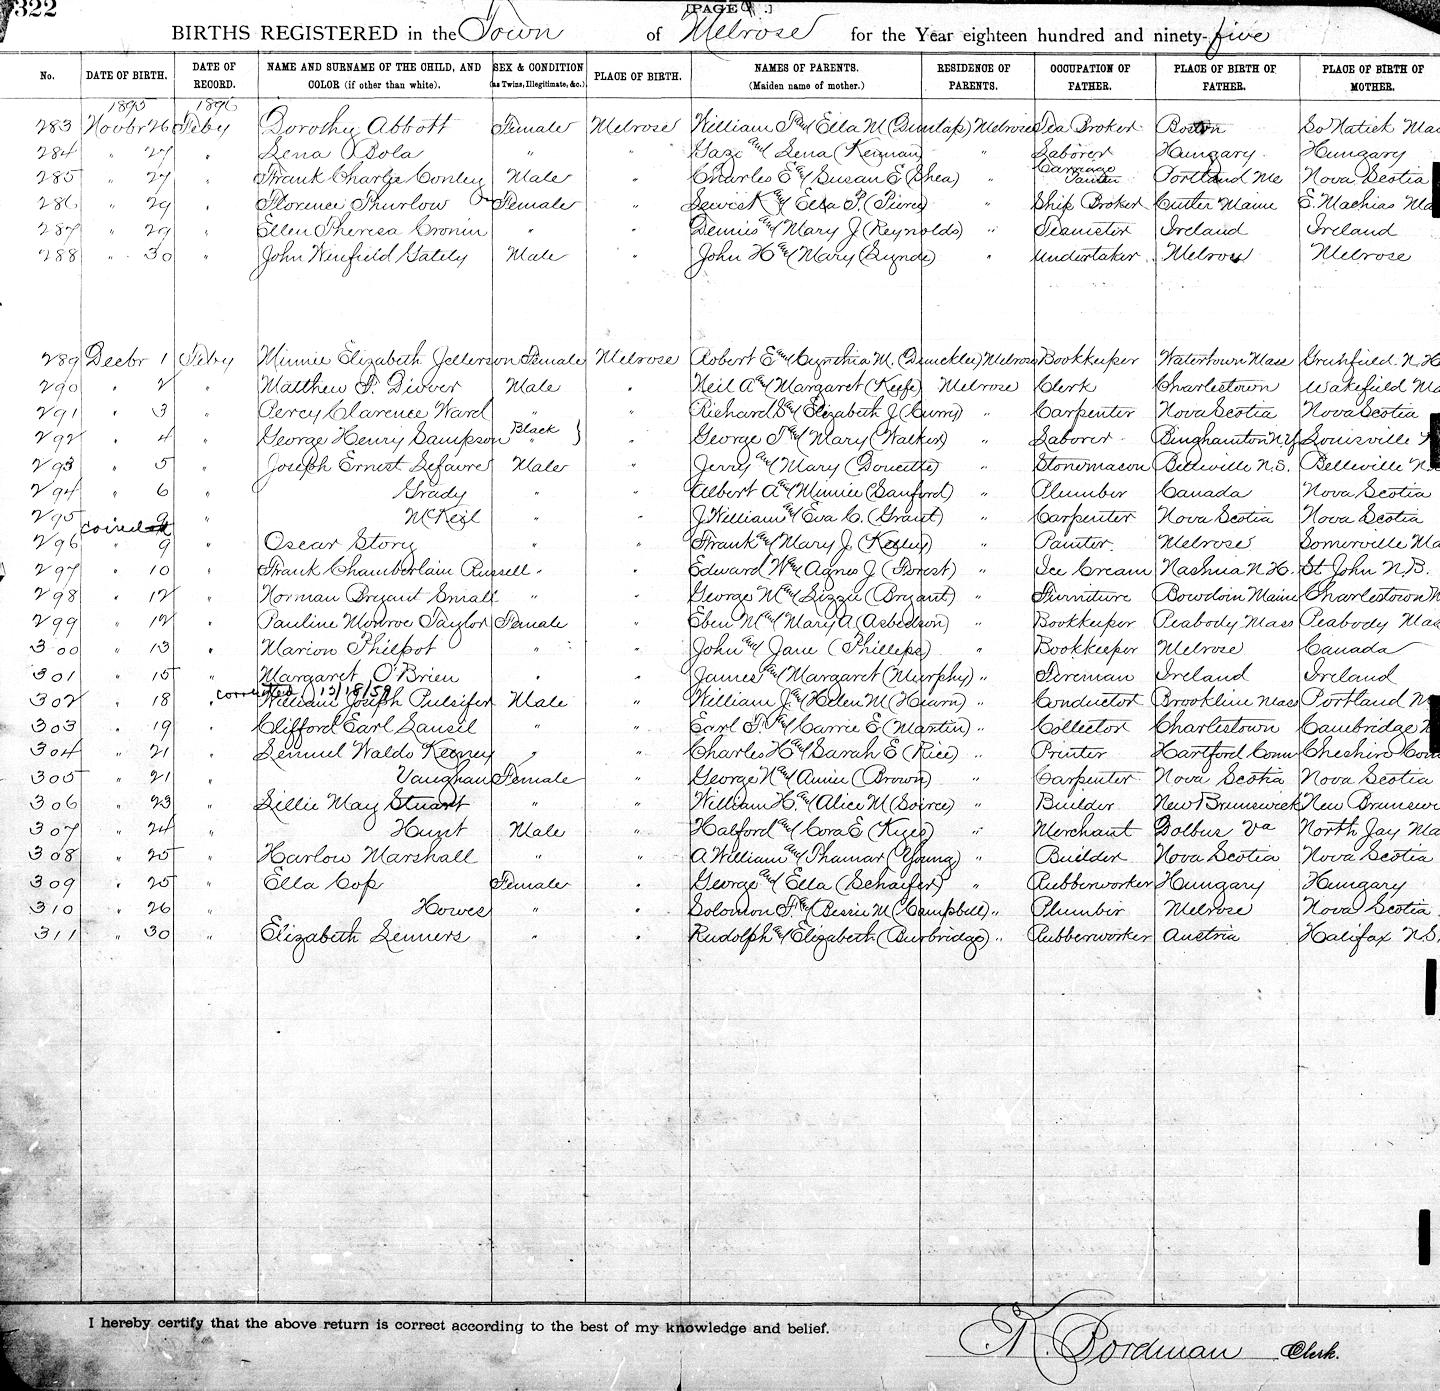 322
[PAGE .]
BIRTHS REGISTERED in the Town of Melrose for the Year eighteen hundred and ninety-five
No. DATE OF BIRTH. DATE OF RECORD. NAME AND SURNAME OF THE CHILD, AND COLOR (if other than white). SEX & CONDITION (as Twins, Illegitimate, &c.) PLACE OF BIRTH. NAMES OF PARENTS. (Maiden name of mother.) RESIDENCE OF PARENTS. OCCUPATION OF FATHER. PLACE OF BIRTH OF FATHER. PLACE OF BIRTH OF MOTHER.
1895 1896
283 Novbr 26 Feby Dorothy Abbott Female Melrose William T and Ella M (Dunlap) Melrose Tea Broker Boston So Natick Mas
284 " 27 " Lena Bola " " and Lena (Keiman) " Laborer Hungary Hungary
285 " 27 " Frank Charles Conley Male " Charles E and Susan E (Shea) " Carriage Painter Portland Me Nova Scotia
286 " 29 " Florence Thurlow Female " Lewis K and Ella P. (Pierce) " Ship Broker Cutler Maine E. Machias Ma
287 " 29 " Ellen Theresa Cronin " " Dennis and Mary J (Reynolds) " Teamster Ireland Ireland
288 " 30 " John Winfield Gately Male " John H and Mary (Lynde) " Undertaker Melrose Melrose
289 Decbr 1 Feby Minnie Elizabeth Jefferson Female Melrose Robert E and Cynthia M. (Dunckley) Melrose Bookkeeper Watertown Mass N. H
290 " 2 " Matthew F. Divver Male " Neil A and Margaret (Keefe) Melrose Clerk Charlestown Wakefield Ma
291 " 3 " Percy Clarence Ward " " Richard S and Elizabeth J (Curry) " Carpenter Nova Scotia Nova Scotia
292 " 4 " George Henry Sampson Black " } " George T and Mary (Walker) " Laborer Binghamton N.Y Louisville
293 " 5 " Joseph Ernest Lefavre Male " Jerry and Mary (Doucette) " Stonemason Belleville N.S. Belleville N.S
294 " 6 " Grady " " Albert A and Minnie (Sanford) " Plumber Canada Nova Scotia
295 " 9 " McKeil " " J William and Eva C. (Grant) " Carpenter Nova Scotia Nova Scotia
296 " 9 " Oscar Story " " Frank and Mary J. (Kelley) " Painter Melrose Somerville Ma
297 " 10 " Frank Chamberlain Russell " " Edward W and Agnes J (Forest) " Ice Cream Nashua N H. St John N.B.
298 " 12 " Norman Bryant Small " " George M and Lizzie (Bryant) " Furniture Bowdoin Maine Charlestown
299 " 12 " Pauline Monroe Taylor Female " Eben M and Mary A " Bookkeeper Peabody Mass Peabody Mas
300 " 13 " Marion Philpot " " John and Jane (Phillips) " Bookkeeper Melrose Canada
301 " 15 " Margaret O'Brien " " James and Margaret (Murphy) " Fireman Ireland Ireland
corrected
302 " 18 " William Joseph Pulsifer Male " William J. and Helen M (Hearn) " Conductor Brookline Mass Portland
303 " 19 " Clifford Earl Lansil " " Earl F. and Carrie E (Martin) " Collector Charlestown Cambridge
304 " 21 " Lemuel Waldo Keeney " " Charles H and Sarah E (Rice) " Printer Hartford Conn Cheshire Con
305 " 21 " Vaughan Female " George N and Annie (Brown) " Carpenter Nova Scotia Nova Scotia
306 " 23 " Lillie May Stuart " " William H. and Alice M " Builder New Brunswick New Brunsw
307 " 24 " Hunt Male " Halford and Cora E (Keyes) " Merchant Va North Jay Ma
308 " 25 " Harlow Marshall " " A William and Thamar (Young) " Builder Nova Scotia Nova Scotia
309 " 25 " Ella Cop Female " George and Ella (Schaifer) " Rubberworker Hungary Hungary
310 " 26 " Howes " " Solomon F. and Bessie M (Campbell) " Plumber Melrose Nova Scotia
311 " 30 " Elizabeth Lenners " " Rudolph and Elizabeth (Burbridge) " Rubberworker Austria Halifax N.S.
I hereby certify that the above return is correct according to the best of my knowledge and belief.
Clerk.